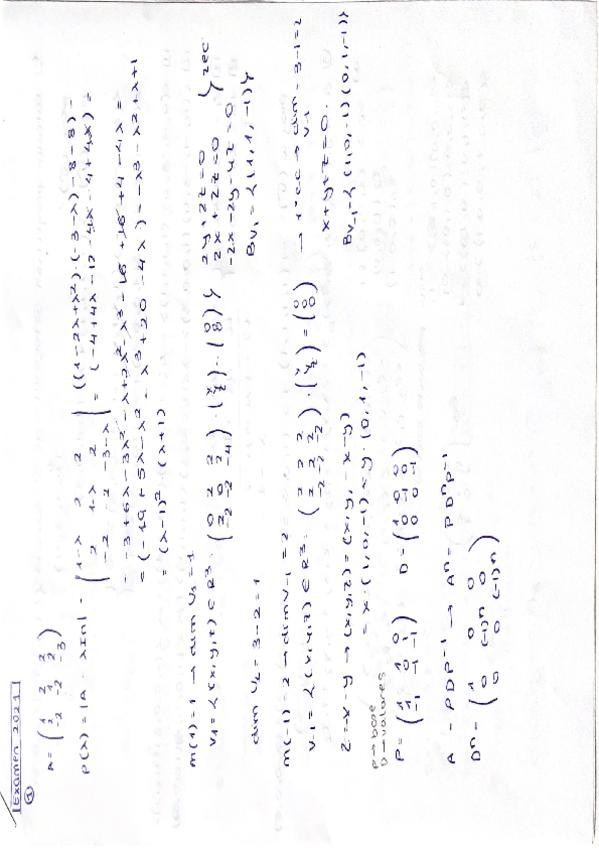 Examen 2021
①
A = ( 1 2 2 / 2 1 2 / -2 -2 -3 )
P(λ) = |A - λIn| = | 1-λ 2 2 / 2 1-λ 2 / -2 -2 -3-λ | = ((1-2λ+λ²)·(-3-λ)-8-8)-
= -3+6λ-3λ²-λ+2λ²-λ³-16+16+4-4λ =
= -λ³-λ²+λ+1
= (λ-1)²·(λ+1)
m(1)=1 → dim V₁=1
V₁ = {(x,y,z) ∈ R³: ( 0 2 2 / 2 0 2 / -2 -2 -4 )·( x / y / z ) = ( 0 / 0 / 0 )} 2y+2z=0
2x+2z=0
-2x-2y-4z=0
} 2ec
dim V₁=3-2=1
Bv₁={(1,1,-1)}
m(-1)=2 → dim V-1=2
V-1={(x,y,z) ∈ R³: ( 2 2 2 / 2 2 2 / -2 -2 -2 )·( x / y / z ) = ( 0 / 0 / 0 ) → 1 ec → dim V-1=3-1=2
x+y+z=0.
z=-x-y → (x,y,z)=(x,y,-x-y)
= x·(1,0,-1)+y·(0,1,-1)
Bv-1={(1,0,-1)(0,1,-1)}
P → base
D → valores
P= ( 1 1 0 / 1 0 1 / -1 -1 -1 ) D= ( 1 0 0 / 0 -1 0 / 0 0 -1 )
A = PDP⁻¹ → Aⁿ = PDⁿP⁻¹
Dⁿ = ( 1 0 0 / 0 (-1)ⁿ 0 / 0 0 (-1)ⁿ )